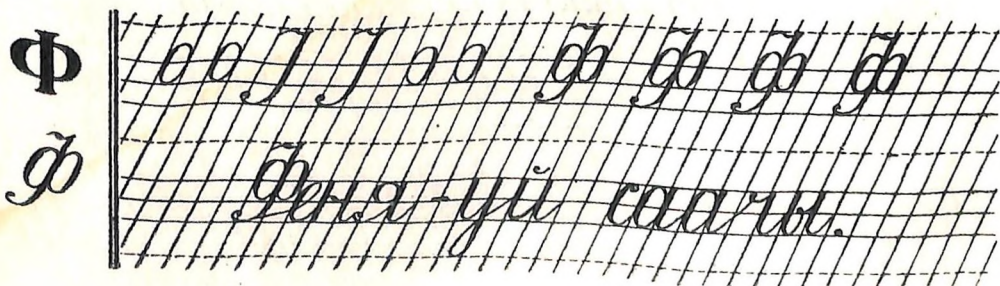 Ф Ф Ф Ф Ф
Ф Феня - уй саачы.